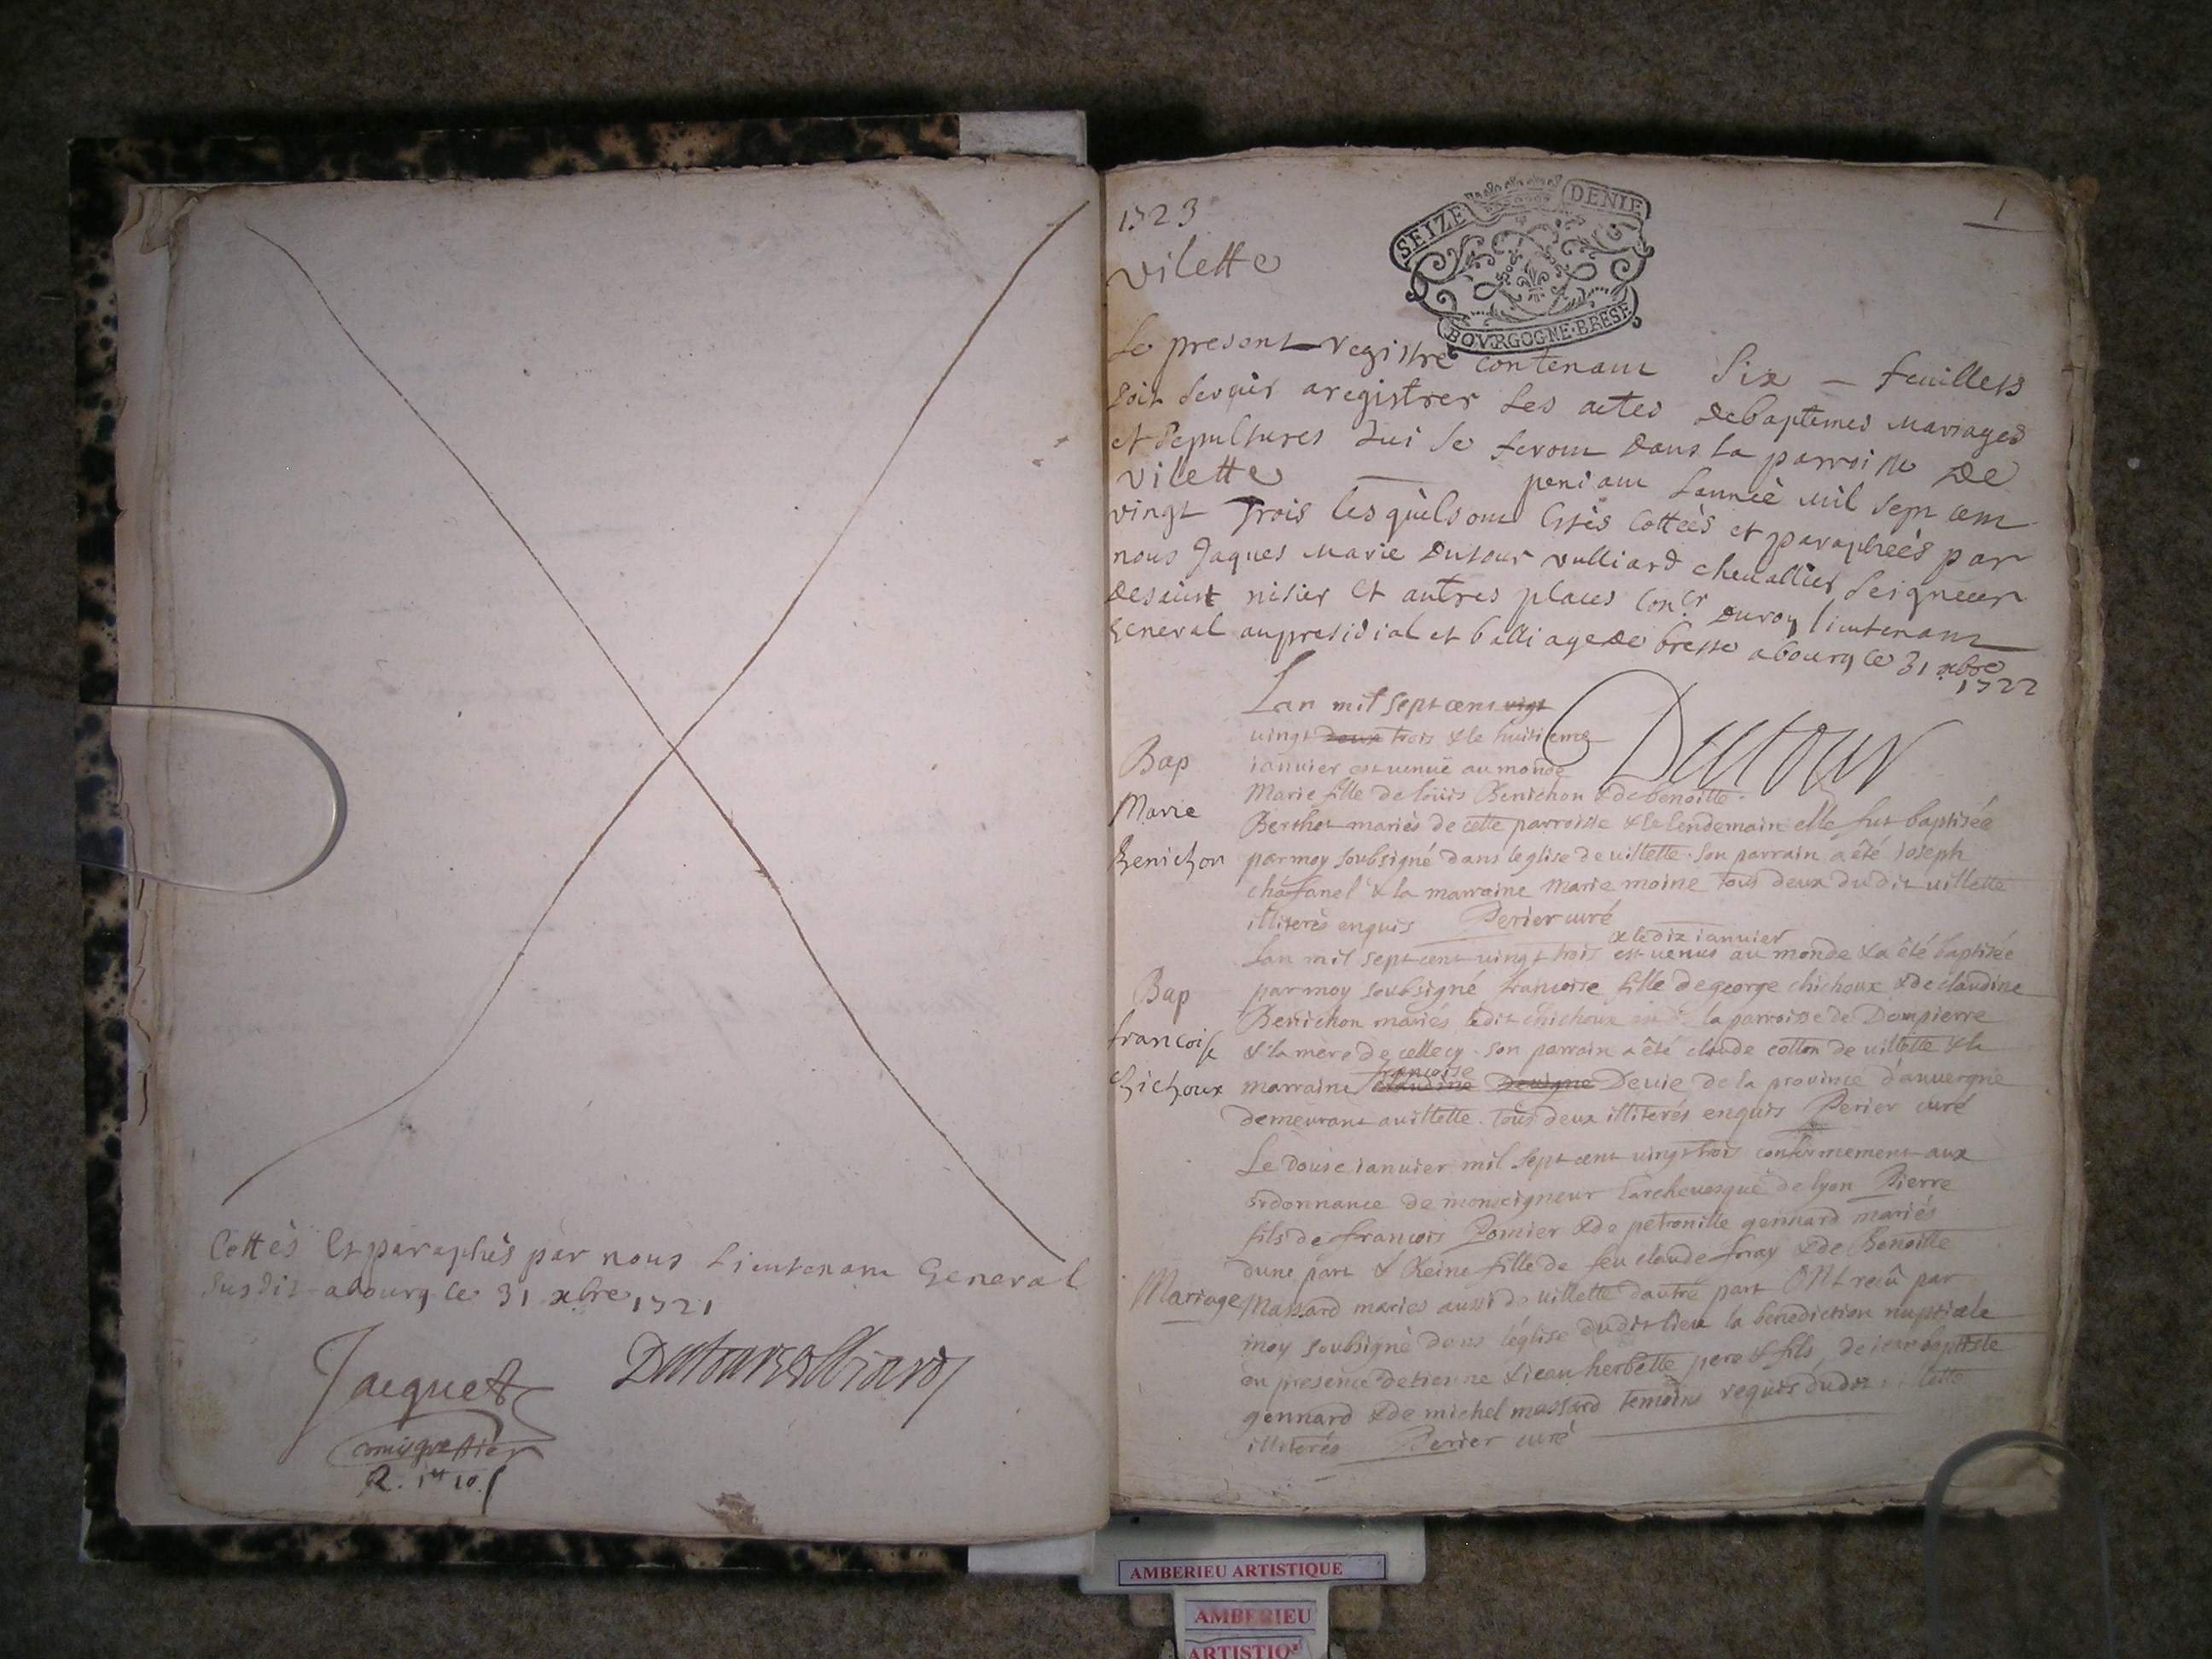 Cottés Et paraphés par nous Lieutenant General
Susdit abourg le 31 xbre 1721
Jacquet
Dutourvulliard
comis greffier
1723
vilette
SEIZE DENIE
BOURGOGNE·BRESE
1
Le present registre contenant Six — feuillets
Soit servir aregistrer Les actes debaptemes Mariages
et Sepultures Qui se feront Dans la parroisse De
vilette — peniant Lanneè Mil Sept cent
vingt Trois lesquels ont Estés Cotteès et parapheès par
nous Jaques Marie Dutour vulliard chevallier Seigneur
Desaint nisier Et autres places Con.er Duroy lieutenant
General aupresidial et balliagede bresse abourg le 31 xbre
1722
Dutour
Lan mil sept cent vigt
vingt deux trois & le huitieme
Bap
ianvier est venuë au monde
Marie fille de loüis Benichon & de benoitte
Marie
Berthet mariés de cette parroisse & le lendemain elle fut baptisée
Benichon
par moy soubsigné dans leglise de villette. Son parrain a été Joseph
chafanel & la marraine Marie moine tous deux dudit villette
illiterés enquis Perier curé
& le dix ianvier
Lan mil sept cent vingt trois est venus au monde & a été baptisée
Bap
par moy soubsigné francoise fille de george chichoux & de claudine
Benichon mariés ledit chichoux la parroisse de Dompierre
francoise
& la mere de cellecy. Son parrain a été claude cotton de villette & la
chichoux
francoise
marraine claudine Devigne Devie de la province d'auvergne
demeurant a villette. tous deux illiterés enquis Perier curé
Le douse ianvier mil sept cent vingt trois conformement aux
ordonnance de monseigneur Larchevesque de lyon Pierre
fils de francois Pomier & de petronille gennard mariés
dune part & Reine fille de feu claude fray & de Benoitte
Mariage
Massard maries aussi de villette dautre part ONt recû par
moy soubsigné dans léglise dudit lieu la benediction nuptiale
en presence detienne & iean herbette pere & fils, de iean baptiste
gennard & de michel massard temoins requis dudit villette
illiterés Perier curé
AMBERIEU ARTISTIQUE
AMBERIEU
ARTISTIQ